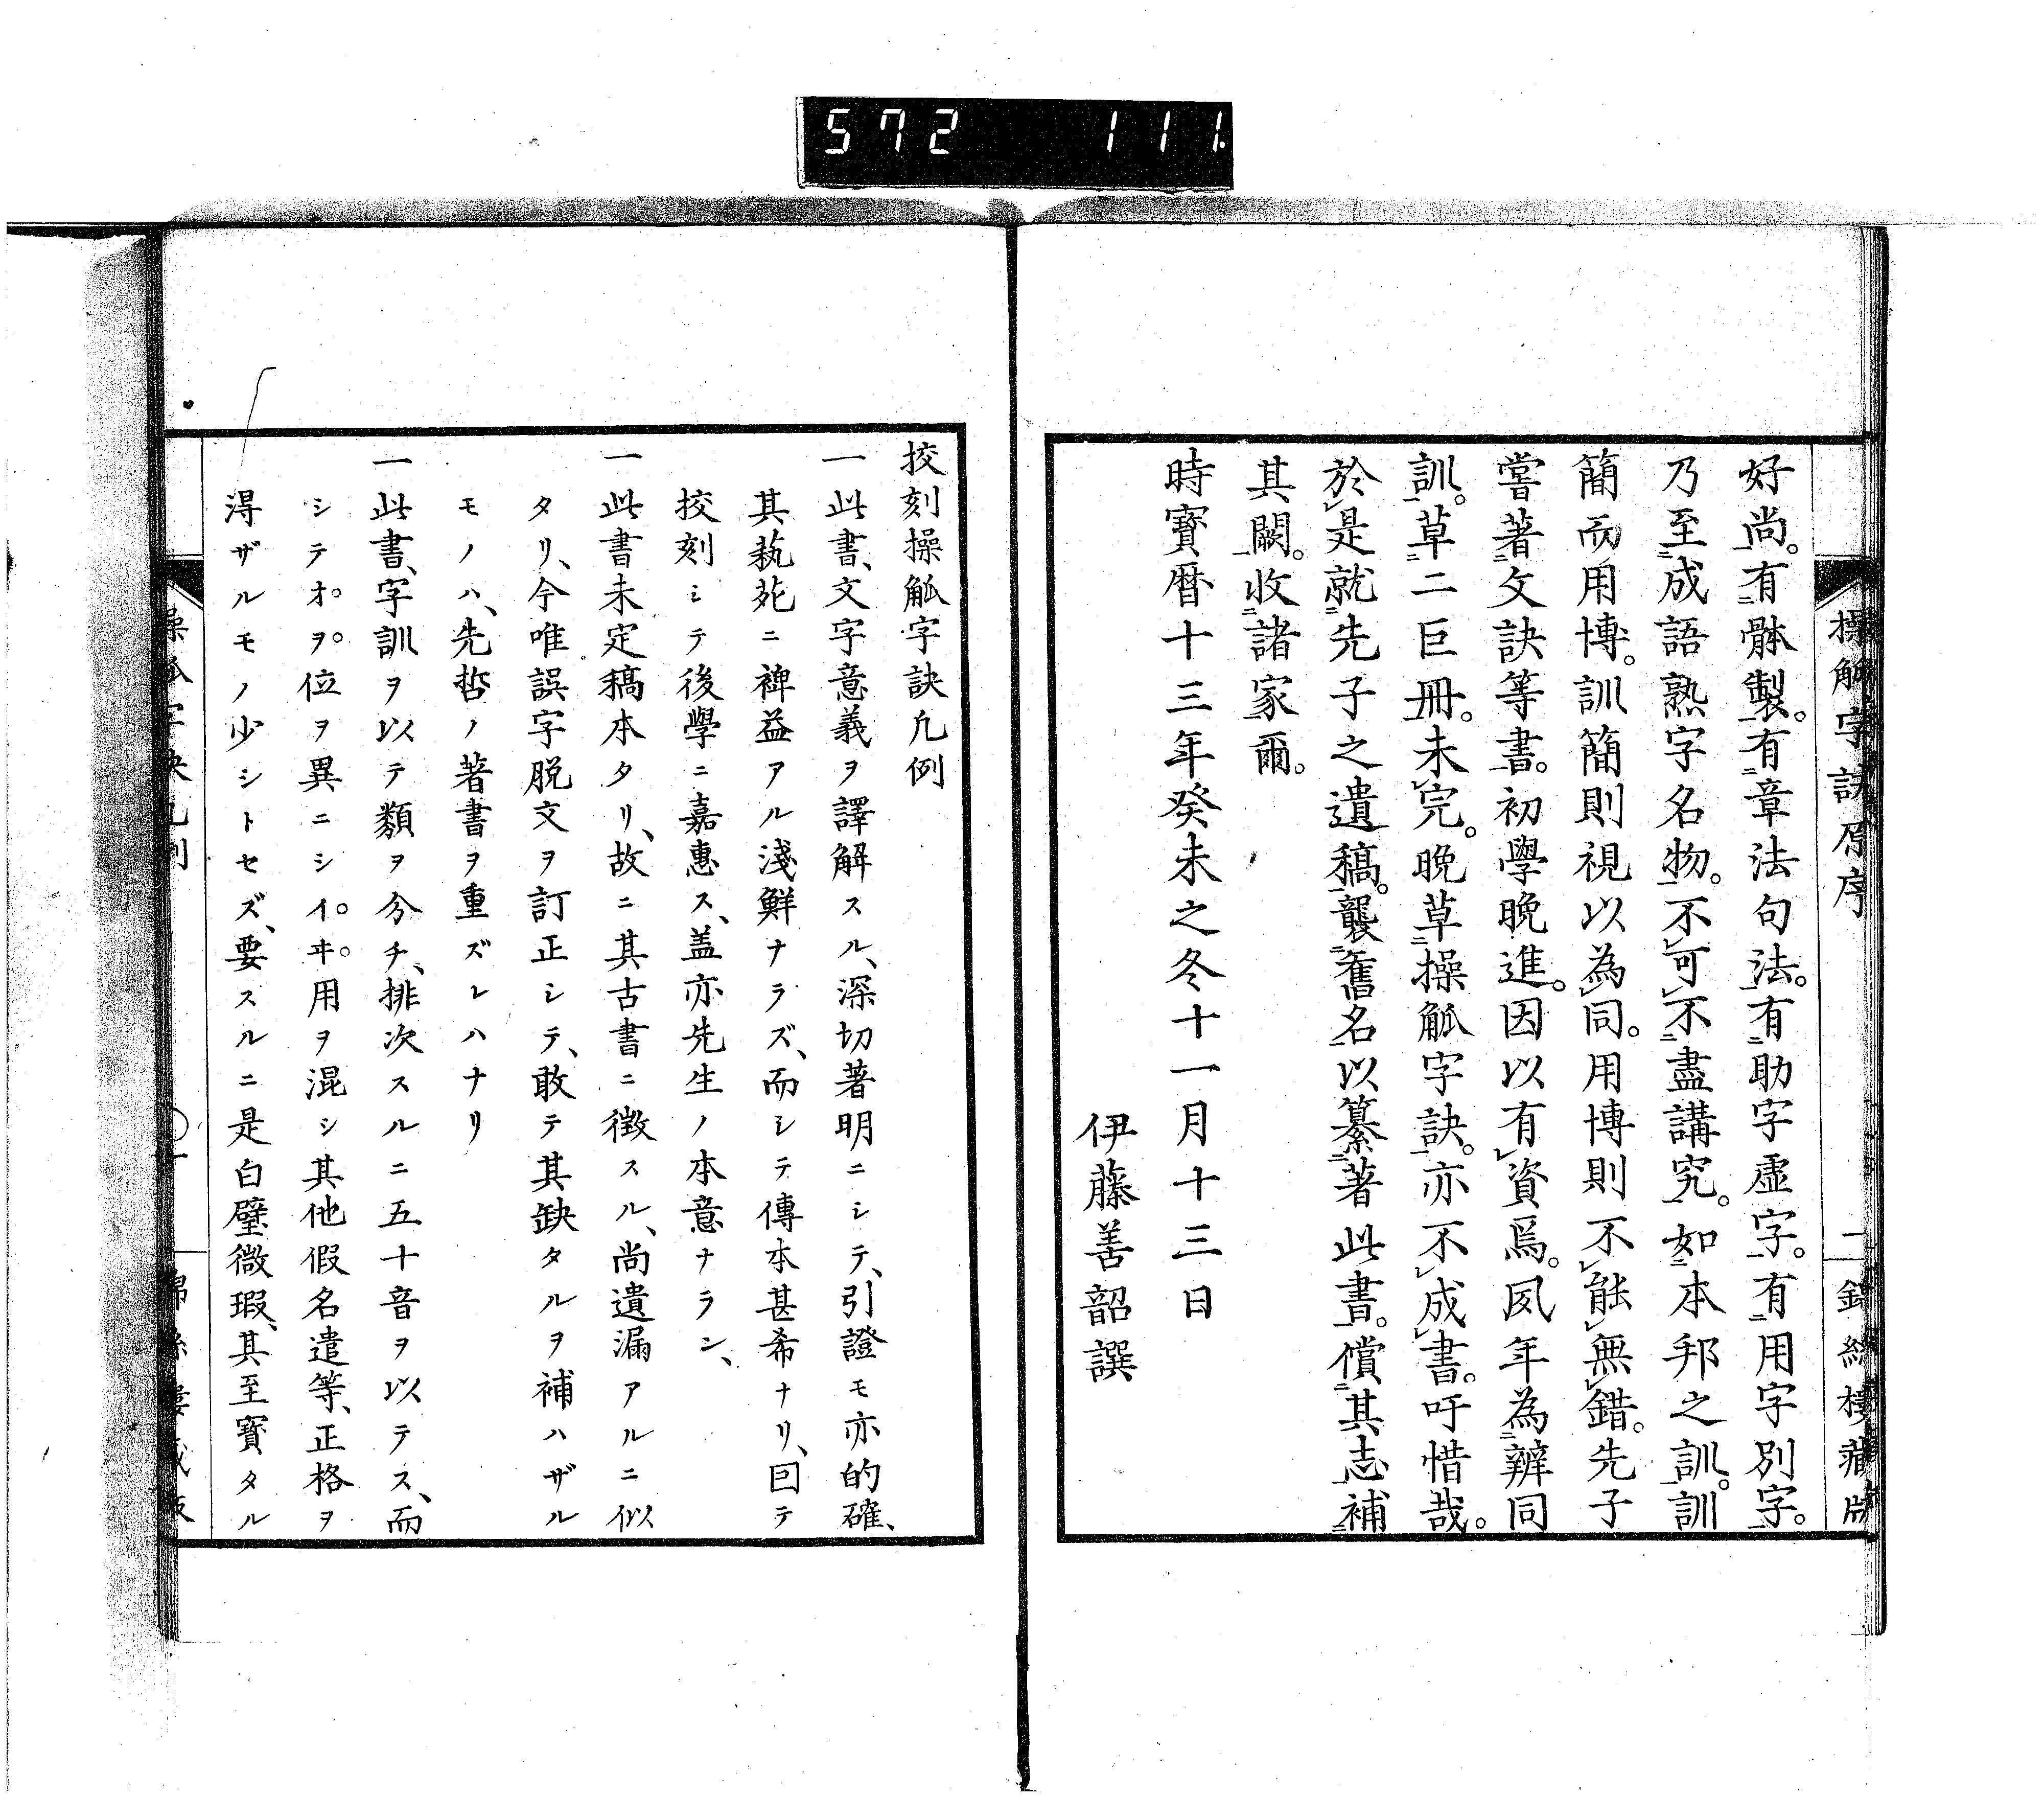 572 111.
操觚字訣原序
二
錦絲樓藏版
好尚。有骵製。有章法句法。有助字虛字。有用字別字。
乃至成語熟字名物。不可不盡講究。如本邦之訓。訓
簡而用博。訓簡則視以為同。用博則不能無錯。先子
嘗著文訣等書。初學晚進。因以有資焉。夙年為辨同
訓。草二巨冊。未完。晚草操觚字訣。亦不成書。吁惜哉。
於是就先子之遺稿。襲舊名以纂著此書。償其志補
其闕。收諸家爾。
時寶曆十三年癸未之冬十一月十三日
伊藤善韶譔
挍刻操觚字訣凢例
一此書、文字意義ヲ譯解スル、深切著明ニシテ、引證モ亦的確、
其藝苑ニ裨益アル淺鮮ナラズ、而シテ傳本甚希ナリ、囙テ
挍刻シテ後學ニ嘉惠ス、盖亦先生ノ本意ナラン、
一此書未定稿本タリ、故ニ其古書ニ徴スル、尚遺漏アルニ似
タリ、今唯誤字脱文ヲ訂正シテ、敢テ其缺タルヲ補ハザル
モノハ、先哲ノ著書ヲ重ズレハナリ
一此書、字訓ヲ以テ類ヲ分チ、排次スルニ五十音ヲ以テス、而
シテオ。ヲ。位ヲ異ニシイ。ヰ。用ヲ混シ其他假名遣等、正格ヲ
得ザルモノ少シトセズ、要スルニ是白璧微瑕、其至寶タル
操觚字訣凡例
〇一
錦絲樓藏版